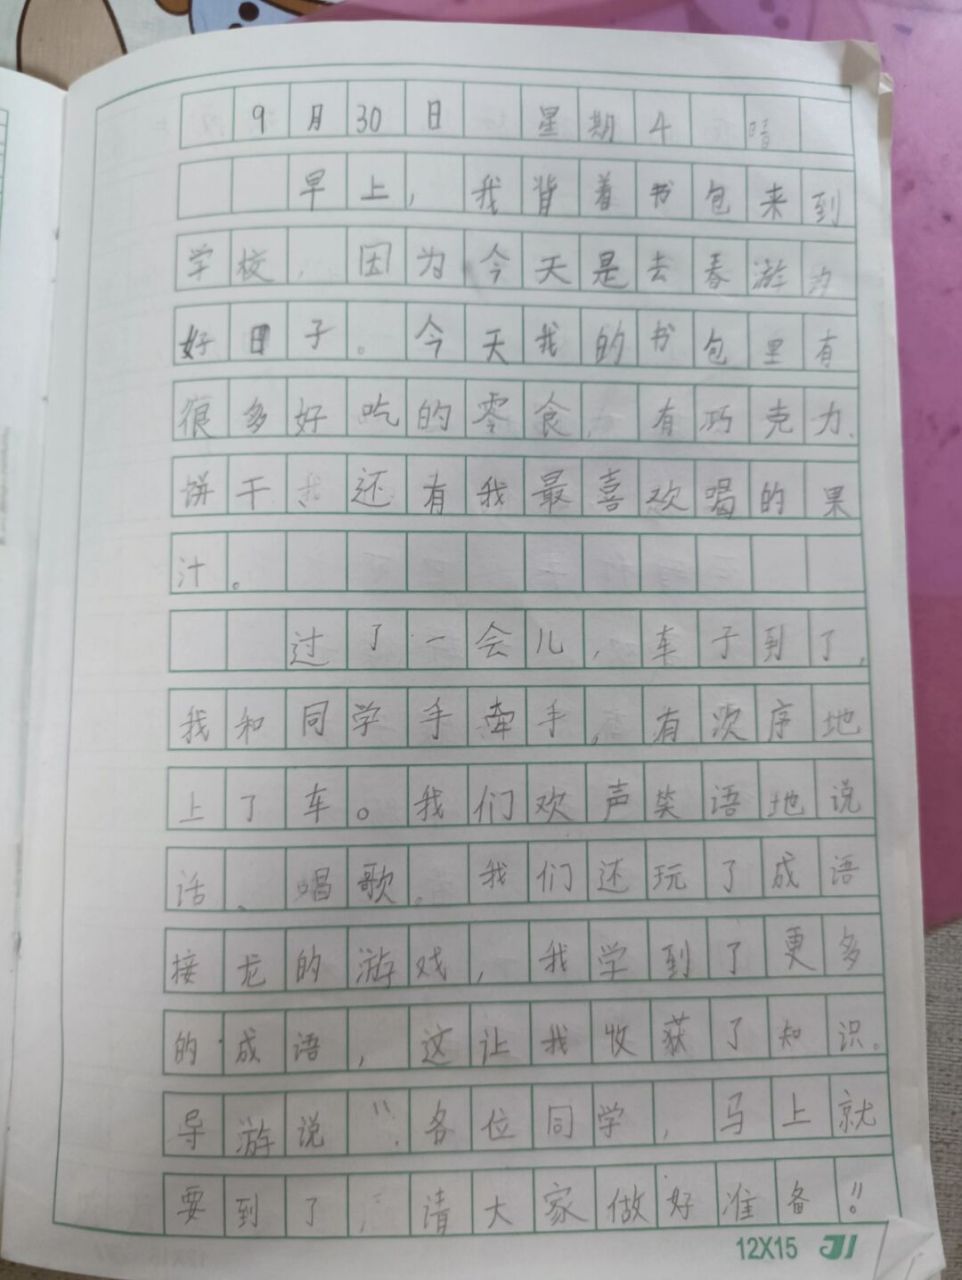 9月30日 星期4 晴
早上，我背着书包来到
学校，因为今天是去春游为
好日子。今天我的书包里有
很多好吃的零食，有巧克力、
饼干还有我最喜欢喝的果
汁。
过了一会儿，车子到了，
我和同学手牵手，有次序地
上了车。我们欢声笑语地说
话、唱歌。我们还玩了成语
接龙的游戏，我学到了更多
的成语，这让我收获了知识。
导游说：“各位同学，马上就
要到了，请大家做好准备！”
12X15